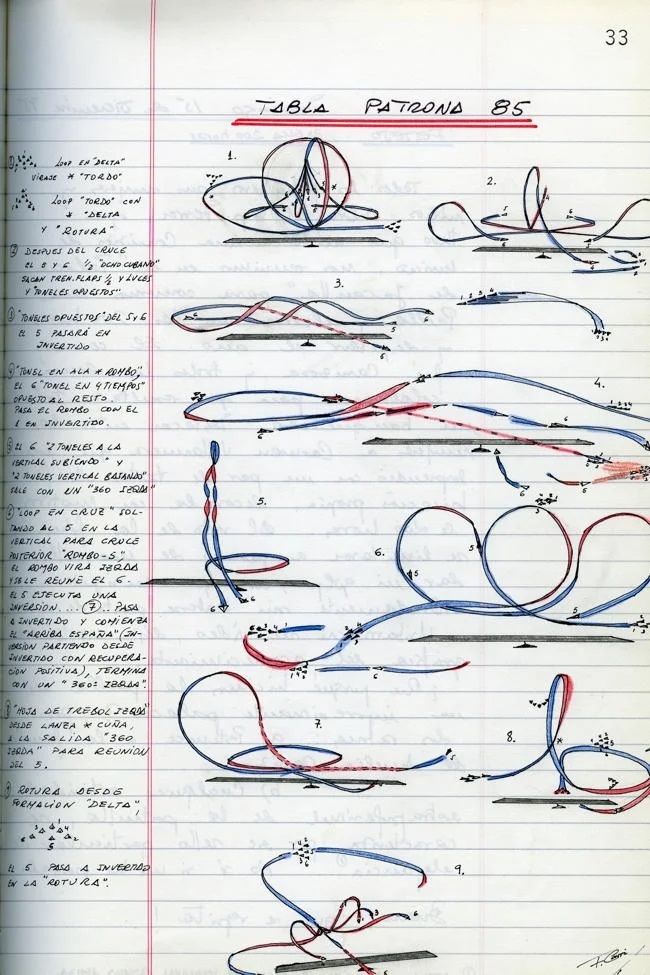 33
TABLA PATRONA 85
① LOOP EN "DELTA"
VIRASE * "TORDO"
LOOP "TORDO" CON
* "DELTA
Y "ROTURA"
② DESPUES DEL CRUCE
EL 5 Y 6 1/2 "OCHO CUBANO"
SACAN TREN, FLAPS 1/2 Y LUCES
Y TONELES OPUESTOS"
③ "TONELES OPUESTOS" DEL 5 Y 6
EL 5 PASARÁ EN
INVERTIDO
④ "TONEL EN ALA * ROMBO",
EL 6 "TONEL EN 4 TIEMPOS"
OPUESTO AL RESTO.
PASA EL ROMBO CON EL
EN INVERTIDO.
⑤ EL 6 "2 TONELES A LA
VERTICAL SUBIENDO" Y
"2 TONELES VERTICAL BAJANDO"
SALE CON UN "360 IZQDA"
⑥ "LOOP EN CRUZ" SOL-
TANDO AL 5 EN LA
VERTICAL PARA CRUCE
POSTERIOR "ROMBO-5".
EL ROMBO VIRA IZQDA
Y SE LE REUNE EL 6.
EL 5 EJECUTA UNA
INVERSION....⑦. PASA
A INVERTIDO Y COMIENZA
EL "ARRIBA ESPAÑA" (IN-
VERSION PARTIENDO DESDE
INVERTIDO CON RECUPERA-
CION POSITIVA), TERMINA
CON UN "360º IZQDA".
"HOJA DE TREBOL IZQDA"
DESDE LANZA * CUÑA,
A LA SALIDA "360
IZQDA" PARA REUNION
DEL 5.
ROTURA DESDE
FORMACION "DELTA",
EL 5 PASA A INVERTIDO
EN LA "ROTURA".
1.
2.
3.
4.
5.
6.
7.
8.
9.